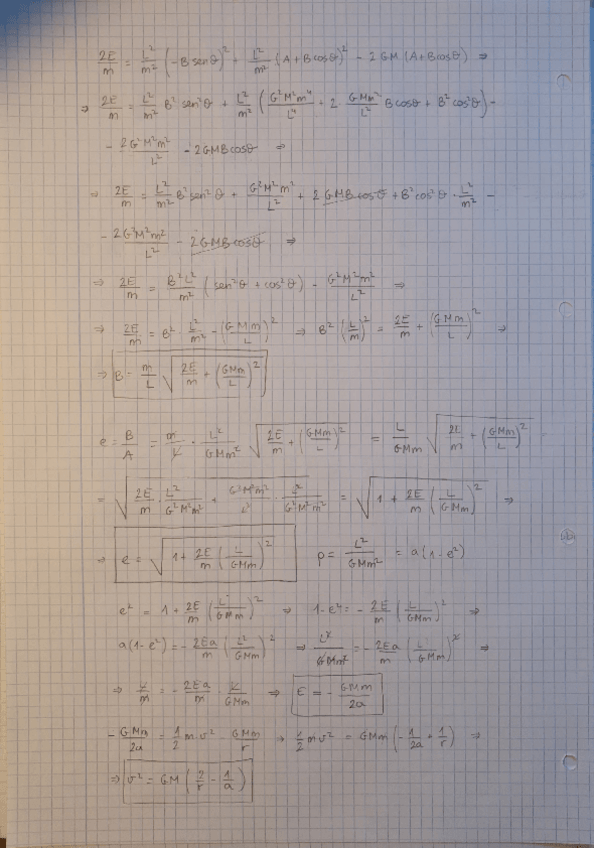 2E/m = L²/m² (-B senθ)² + L²/m² (A+Bcosθ)² - 2GM (A+Bcosθ) ⇒
⇒ 2E/m = L²/m² B² sen²θ + L²/m² (G²M²m⁴/L⁴ + 2 GMm²/L² Bcosθ + B² cos²θ) -
- 2G²M²m²/L² - 2GMBcosθ ⇒
⇒ 2E/m = L²/m² B² sen²θ + G²M²m²/L² + 2GMBcosθ + B² cos²θ · L²/m² -
- 2G²M²m²/L² - 2GMBcosθ ⇒
⇒ 2E/m = B²L²/m² (sen²θ + cos²θ) - G²M²m²/L² ⇒
⇒ 2E/m = B² L²/m² - (GMm/L)² ⇒ B² (L/m)² = 2E/m + (GMm/L)² ⇒
⇒ B = m/L √(2E/m + (GMm/L)²)
e = B/A = m/L · L²/GMm² √(2E/m + (GMm/L)²) = L/GMm √(2E/m + (GMm/L)²)
= √(2E/m · L²/G²M²m² + G²M²m²/L² · L²/G²M²m²) = √(1 + 2E/m (L/GMm)²) ⇒
⇒ e = √(1 + 2E/m (L/GMm)²) p = L²/GMm² = a(1-e²)
e² = 1 + 2E/m (L/GMm)² ⇒ 1-e² = - 2E/m (L/GMm)² ⇒
a(1-e²) = - 2Ea/m (L²/GMm)² ⇒ L²/GMm² = - 2Ea/m (L/GMm)² ⇒
⇒ 1/m = - 2Ea/m · 1/GMm ⇒ E = - GMm/2a
- GMm/2a = 1/2 m v² - GMm/r ⇒ 1/2 m v² = GMm (- 1/2a + 1/r) ⇒
⇒ v² = GM (2/r - 1/a)